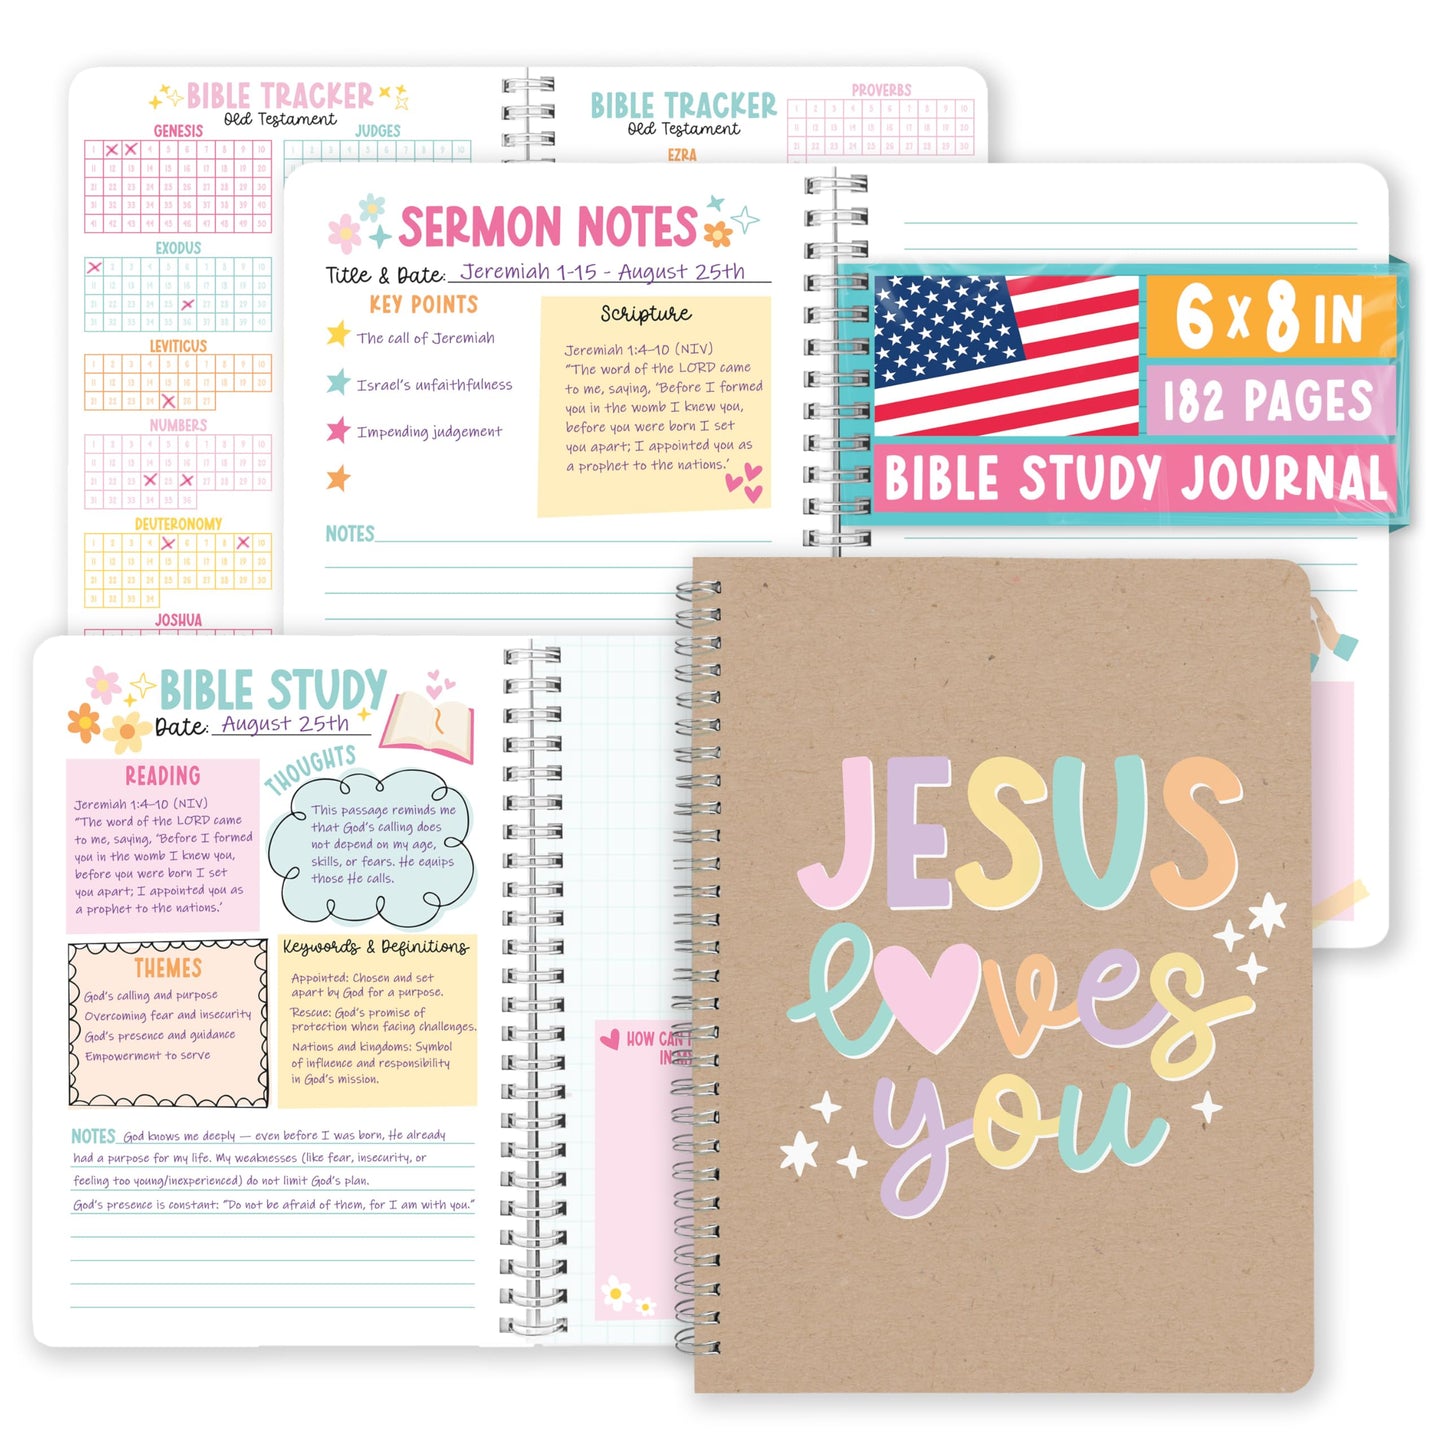 BIBLE TRACKER
Old Testament
GENESIS
JUDGES
EXODUS
LEVITICUS
NUMBERS
DEUTERONOMY
JOSHUA
BIBLE TRACKER
Old Testament
EZRA
PROVERBS
SERMON NOTES
Title & Date: Jeremiah 1-15 - August 25th
KEY POINTS
The call of Jeremiah
Israel's unfaithfulness
Impending judgement
Scripture
Jeremiah 1:4-10 (NIV)
"The word of the LORD came
to me, saying, 'Before I formed
you in the womb I knew you,
before you were born I set
you apart; I appointed you as
a prophet to the nations.'
NOTES
6 x 8 IN
182 PAGES
BIBLE STUDY JOURNAL
BIBLE STUDY
Date: August 25th
READING
Jeremiah 1:4-10 (NIV)
"The word of the LORD came
to me, saying, 'Before I formed
you in the womb I knew you,
before you were born I set
you apart; I appointed you as
a prophet to the nations.'
THOUGHTS
This passage reminds me
that God's calling does
not depend on my age,
skills, or fears. He equips
those He calls.
THEMES
God's calling and purpose
Overcoming fear and insecurity
God's presence and guidance
Empowerment to serve
Keywords & Definitions
Appointed: Chosen and set
apart by God for a purpose.
Rescue: God's promise of
protection when facing challenges.
Nations and kingdoms: Symbol
of influence and responsibility
in God's mission.
NOTES God knows me deeply — even before I was born, He already
had a purpose for my life. My weaknesses (like fear, insecurity, or
feeling too young/inexperienced) do not limit God's plan.
God's presence is constant: "Do not be afraid of them, for I am with you."
HOW CAN
IN
JESUS
loves
you